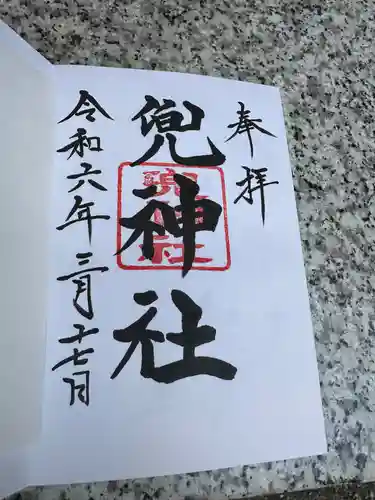 奉拝
兜神社
兜神社
令和六年三月十七月